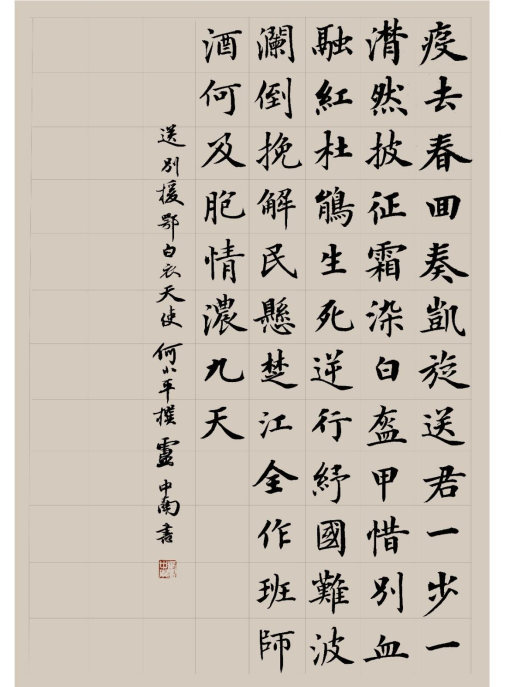 疫去春回奏凱旋送君一步一
潸然披征霜染白盔甲惜別血
融紅杜鵑生死逆行紓國難波
瀾倒挽解民懸楚江全作班師
酒何及胞情濃九天
送別援鄂白衣天使 何小平撰 盧中南書